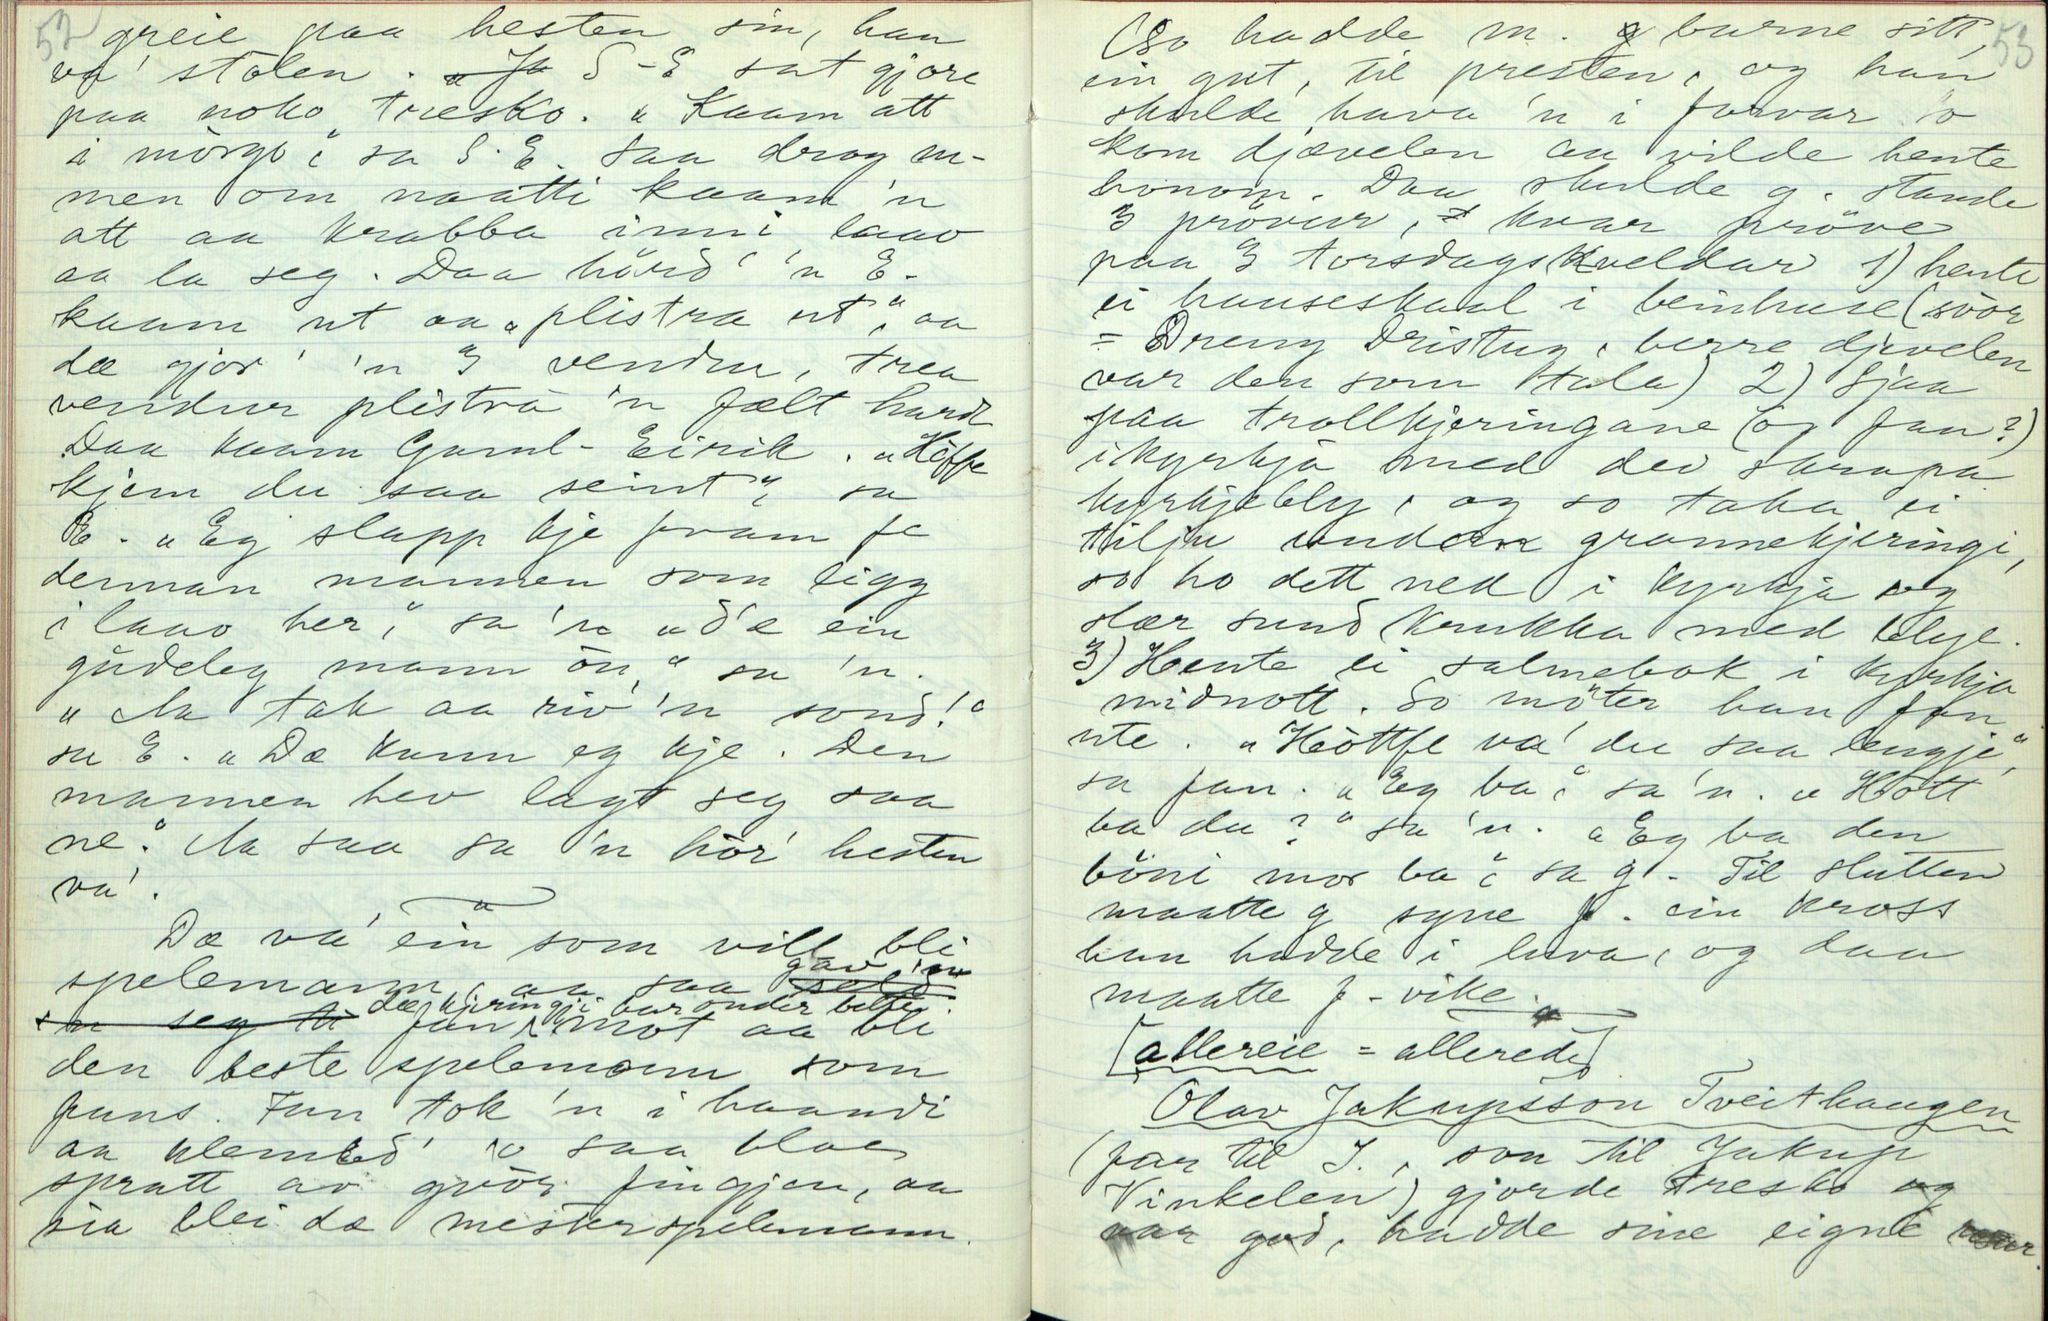 52
greie paa hesten sin, han
va' stolen. S-E sat gjore
paa noko træsko. „Kaam att
i mörgo“, sa S. E. Saa drog m-
men om naatti kaam 'n
att aa krabba inni laav
aa la seg. Daa hörd' 'n E-
kaam ut aa „plistra ut“, aa
dæ gjor' 'n 3 vendu, trea
vendur plistra 'n fælt hardt
Daa kaam Gaml-Eirik. „Höffe
kjem du saa seint“, sa
E. „Eg slapp kje fram fe
derman mannen som ligg
i laav her“, sa 'n „d'æ ein
gudeleg mann ön,“ sa 'n.
„Aa tak aa riv 'n sond!“
sa E. „Dæ kann eg kje. Den
mannen hev lagt seg saa
ne.“ Aa saa sa 'n hör' hesten
va'.
Dæ va' ein som vill bli
spelemann, aa saa gav 'n
dæ kjeringji bar onder beltei
fan, mot aa bli
den beste spelemann som
fans. Fan tok 'n i haandi
aa klemed' so saa bloe
spratt av gvör fingjen, aa
sia blei dæ mesterspelemann.
53
(So hadde m. g barne sitt,
ein gut, til presten, og han
skulde hava 'n i forvar so
kom djævelen aa vilde hente
honom. Daa skulde g. stande
3 prövur, kvar pröve
paa 3 torsdagskveldar 1) hente
ei hauseskaal i beinhuse (svör
= Dreng Dristug, berre djevelen
var den som tala) 2) Sjaa
paa trollkjeringane (og fan?)
i kyrkja med dei skrapa
kyrkjebly, og so taka ei
tilju undan grannekjeringi,
so ho dett ned i kyrkja og
slær sund krukka med blye.
3) Hente ei salmebok i kyrkja
midnott. So möter han fan
ute. „Höttfe va' du saa lengje“,
sa fan. „Eg ba“, sa 'n. „Hött
ba du?“ sa 'n. „Eg ba den
böni mor ba“, sa g. Til slutten
maatte g syne f. ein kross
han hadde i luva, og daa
maatte f. vike.
[allereie = allerede]
Olav Jakupsson Tveithaugen
(far til J., son til Jakup
Vinkelen) gjorde tresko og
var god, hadde sine eigne